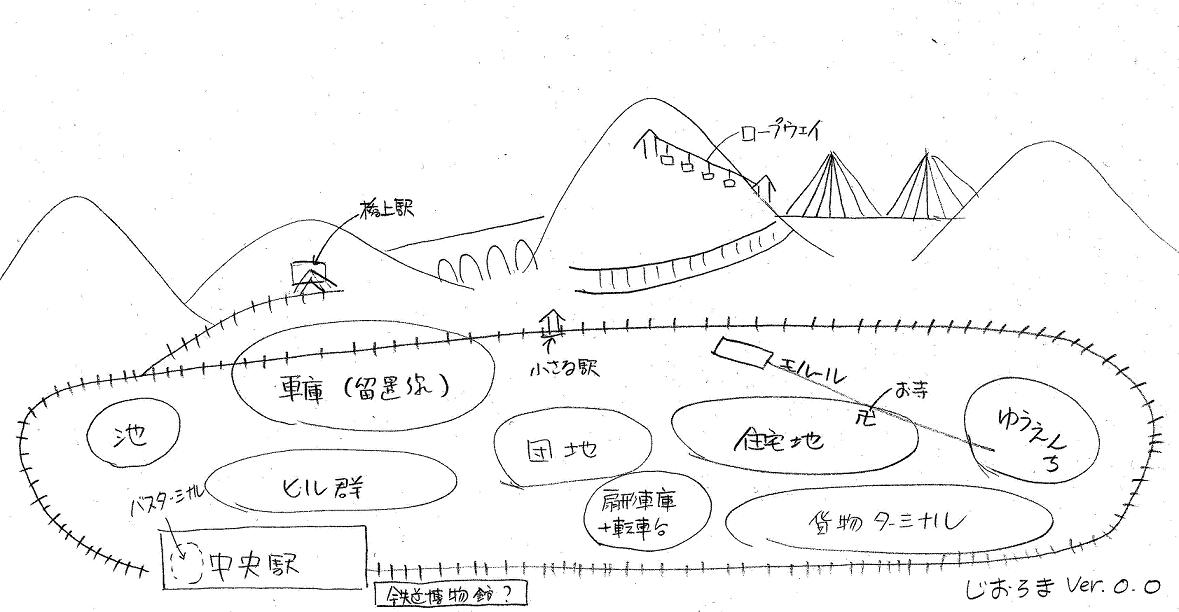 ロープウェイ
橋上駅
小さな駅
車庫(留置線)
モノレール
お寺
卍
池
団地
住宅地
ゆうえん
ち
ビル群
バスターミナル
扇形車庫
+転車台
貨物ターミナル
中央駅
鉄道博物館?
じおらま Ver.0.0